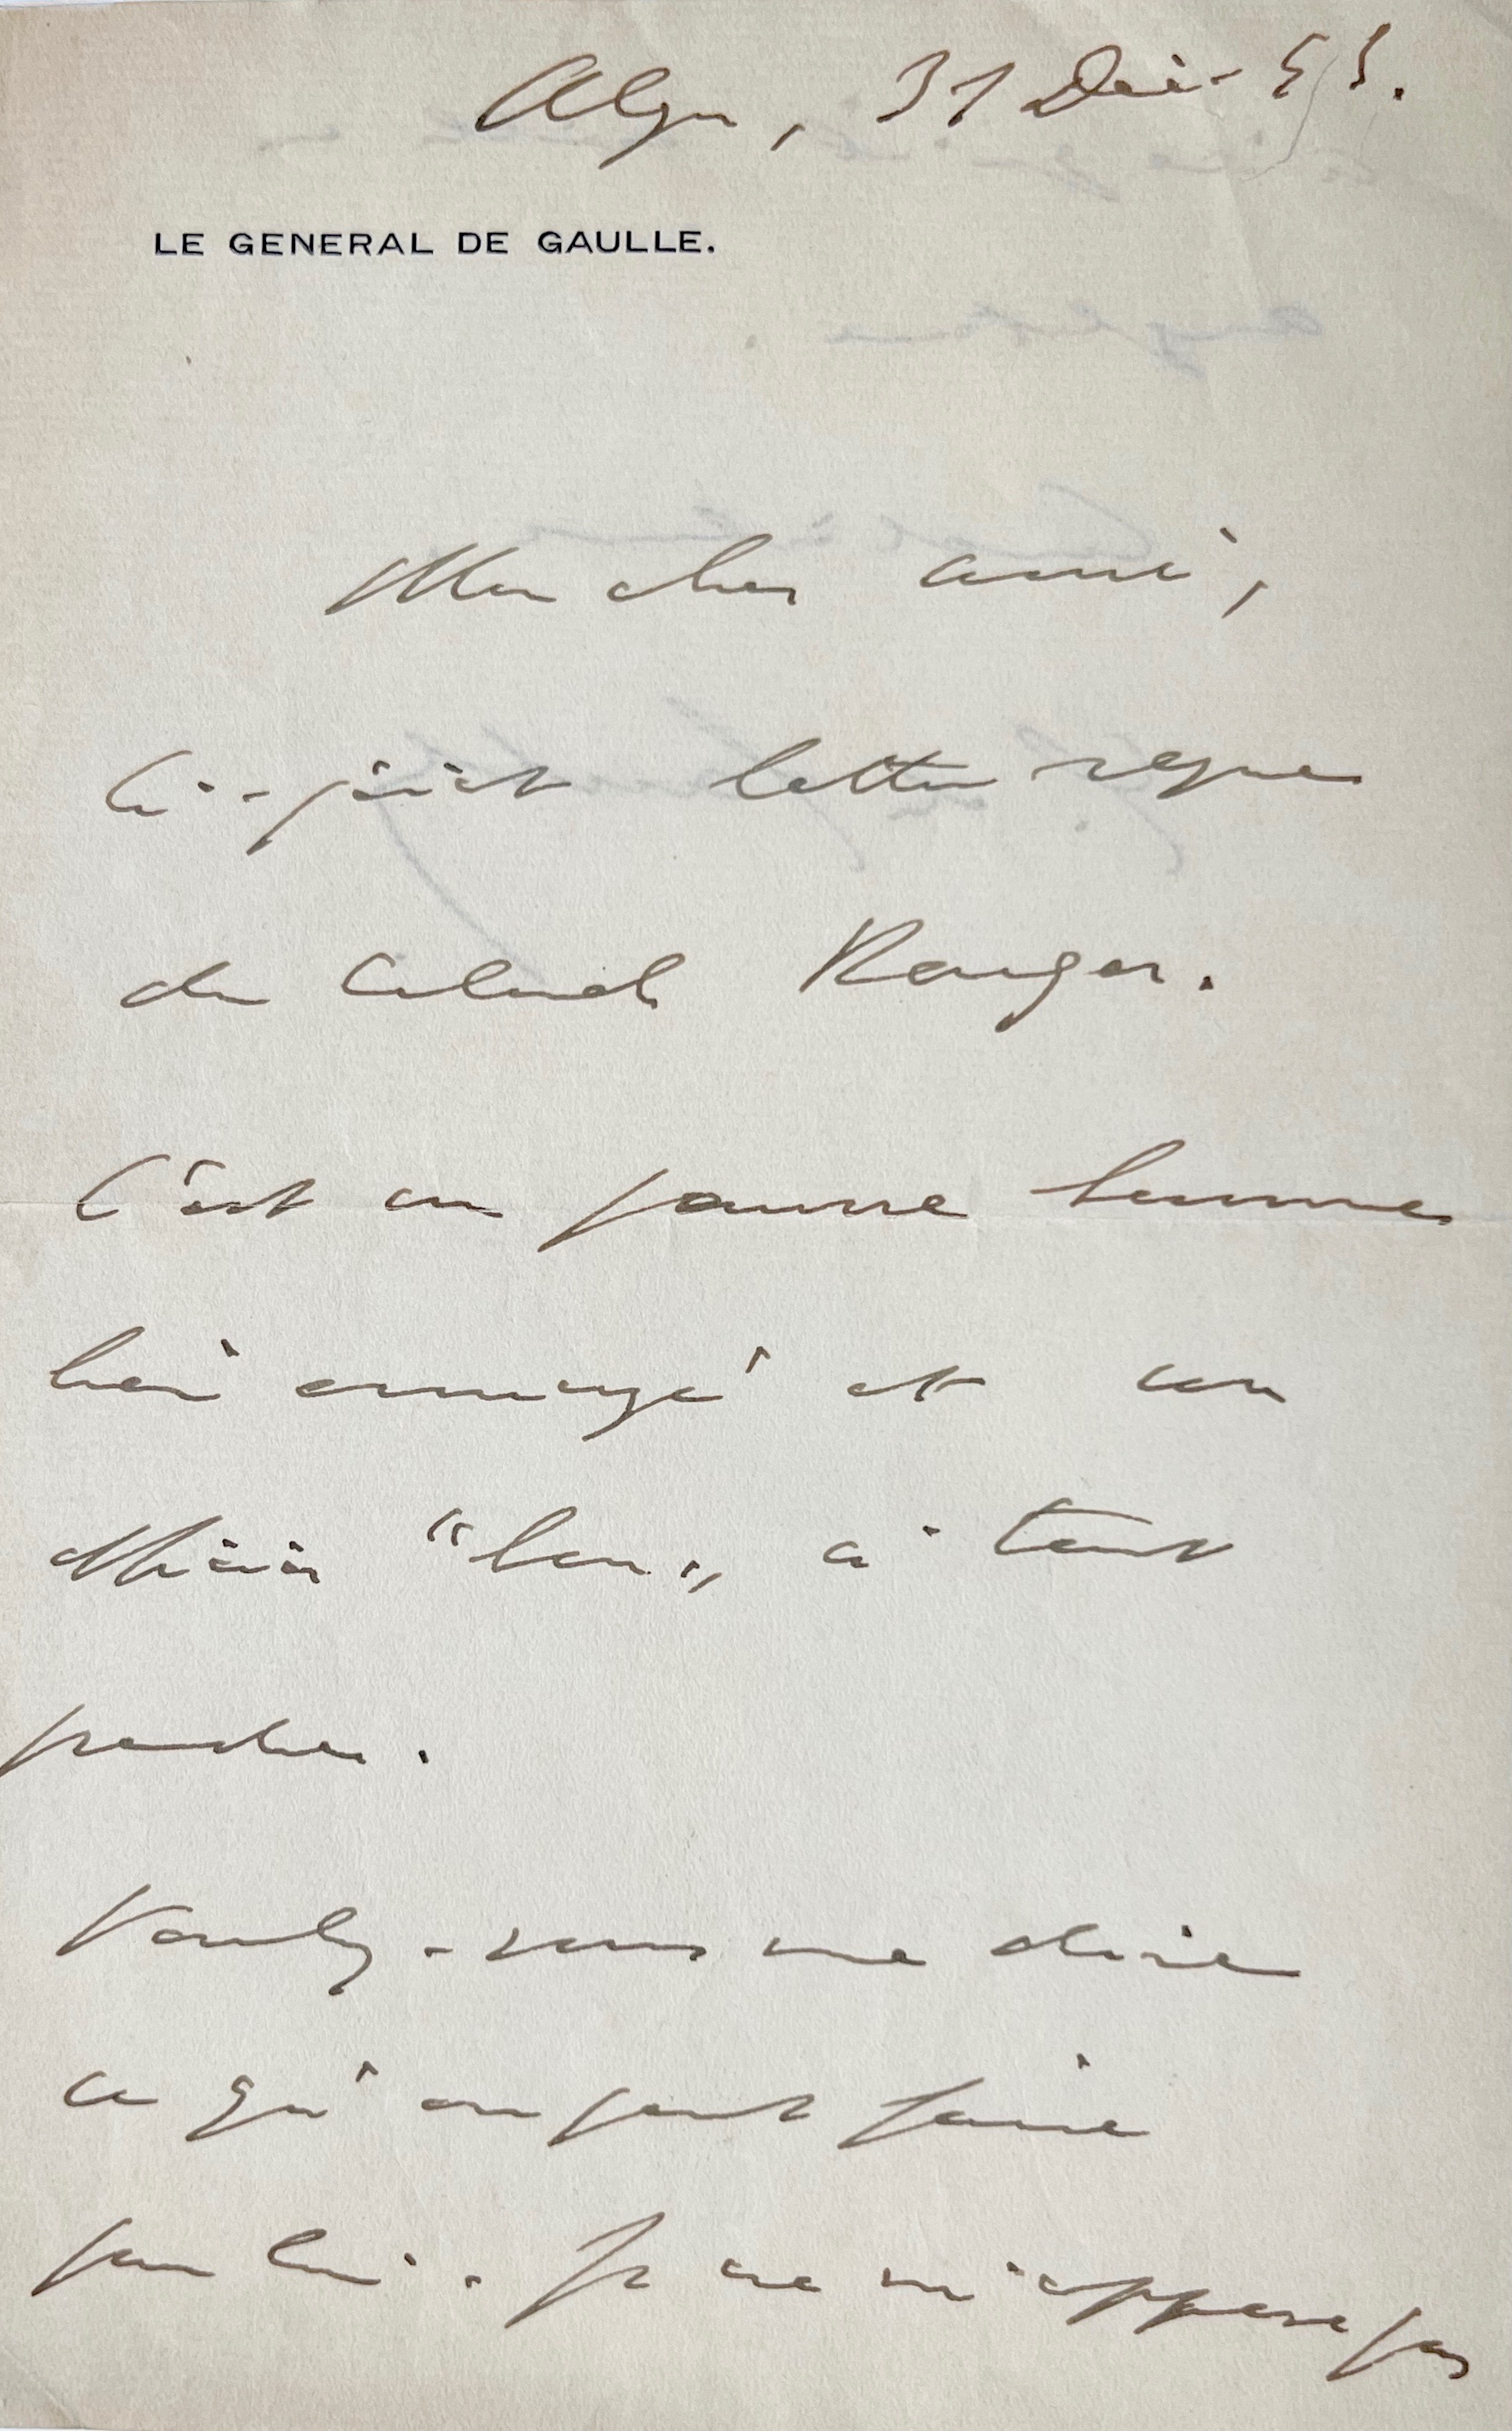 Alger, 31 Déc. 43.
LE GENERAL DE GAULLE.
Mon cher ami,
Ci-joint lettre reçue
du Colonel Rougier.
C'est un pauvre homme
bien ennuyé et un
officier "bon" à tout
prendre.
Voulez-vous me dire
ce qu'on peut faire
pour lui. Je ne m'oppose pas